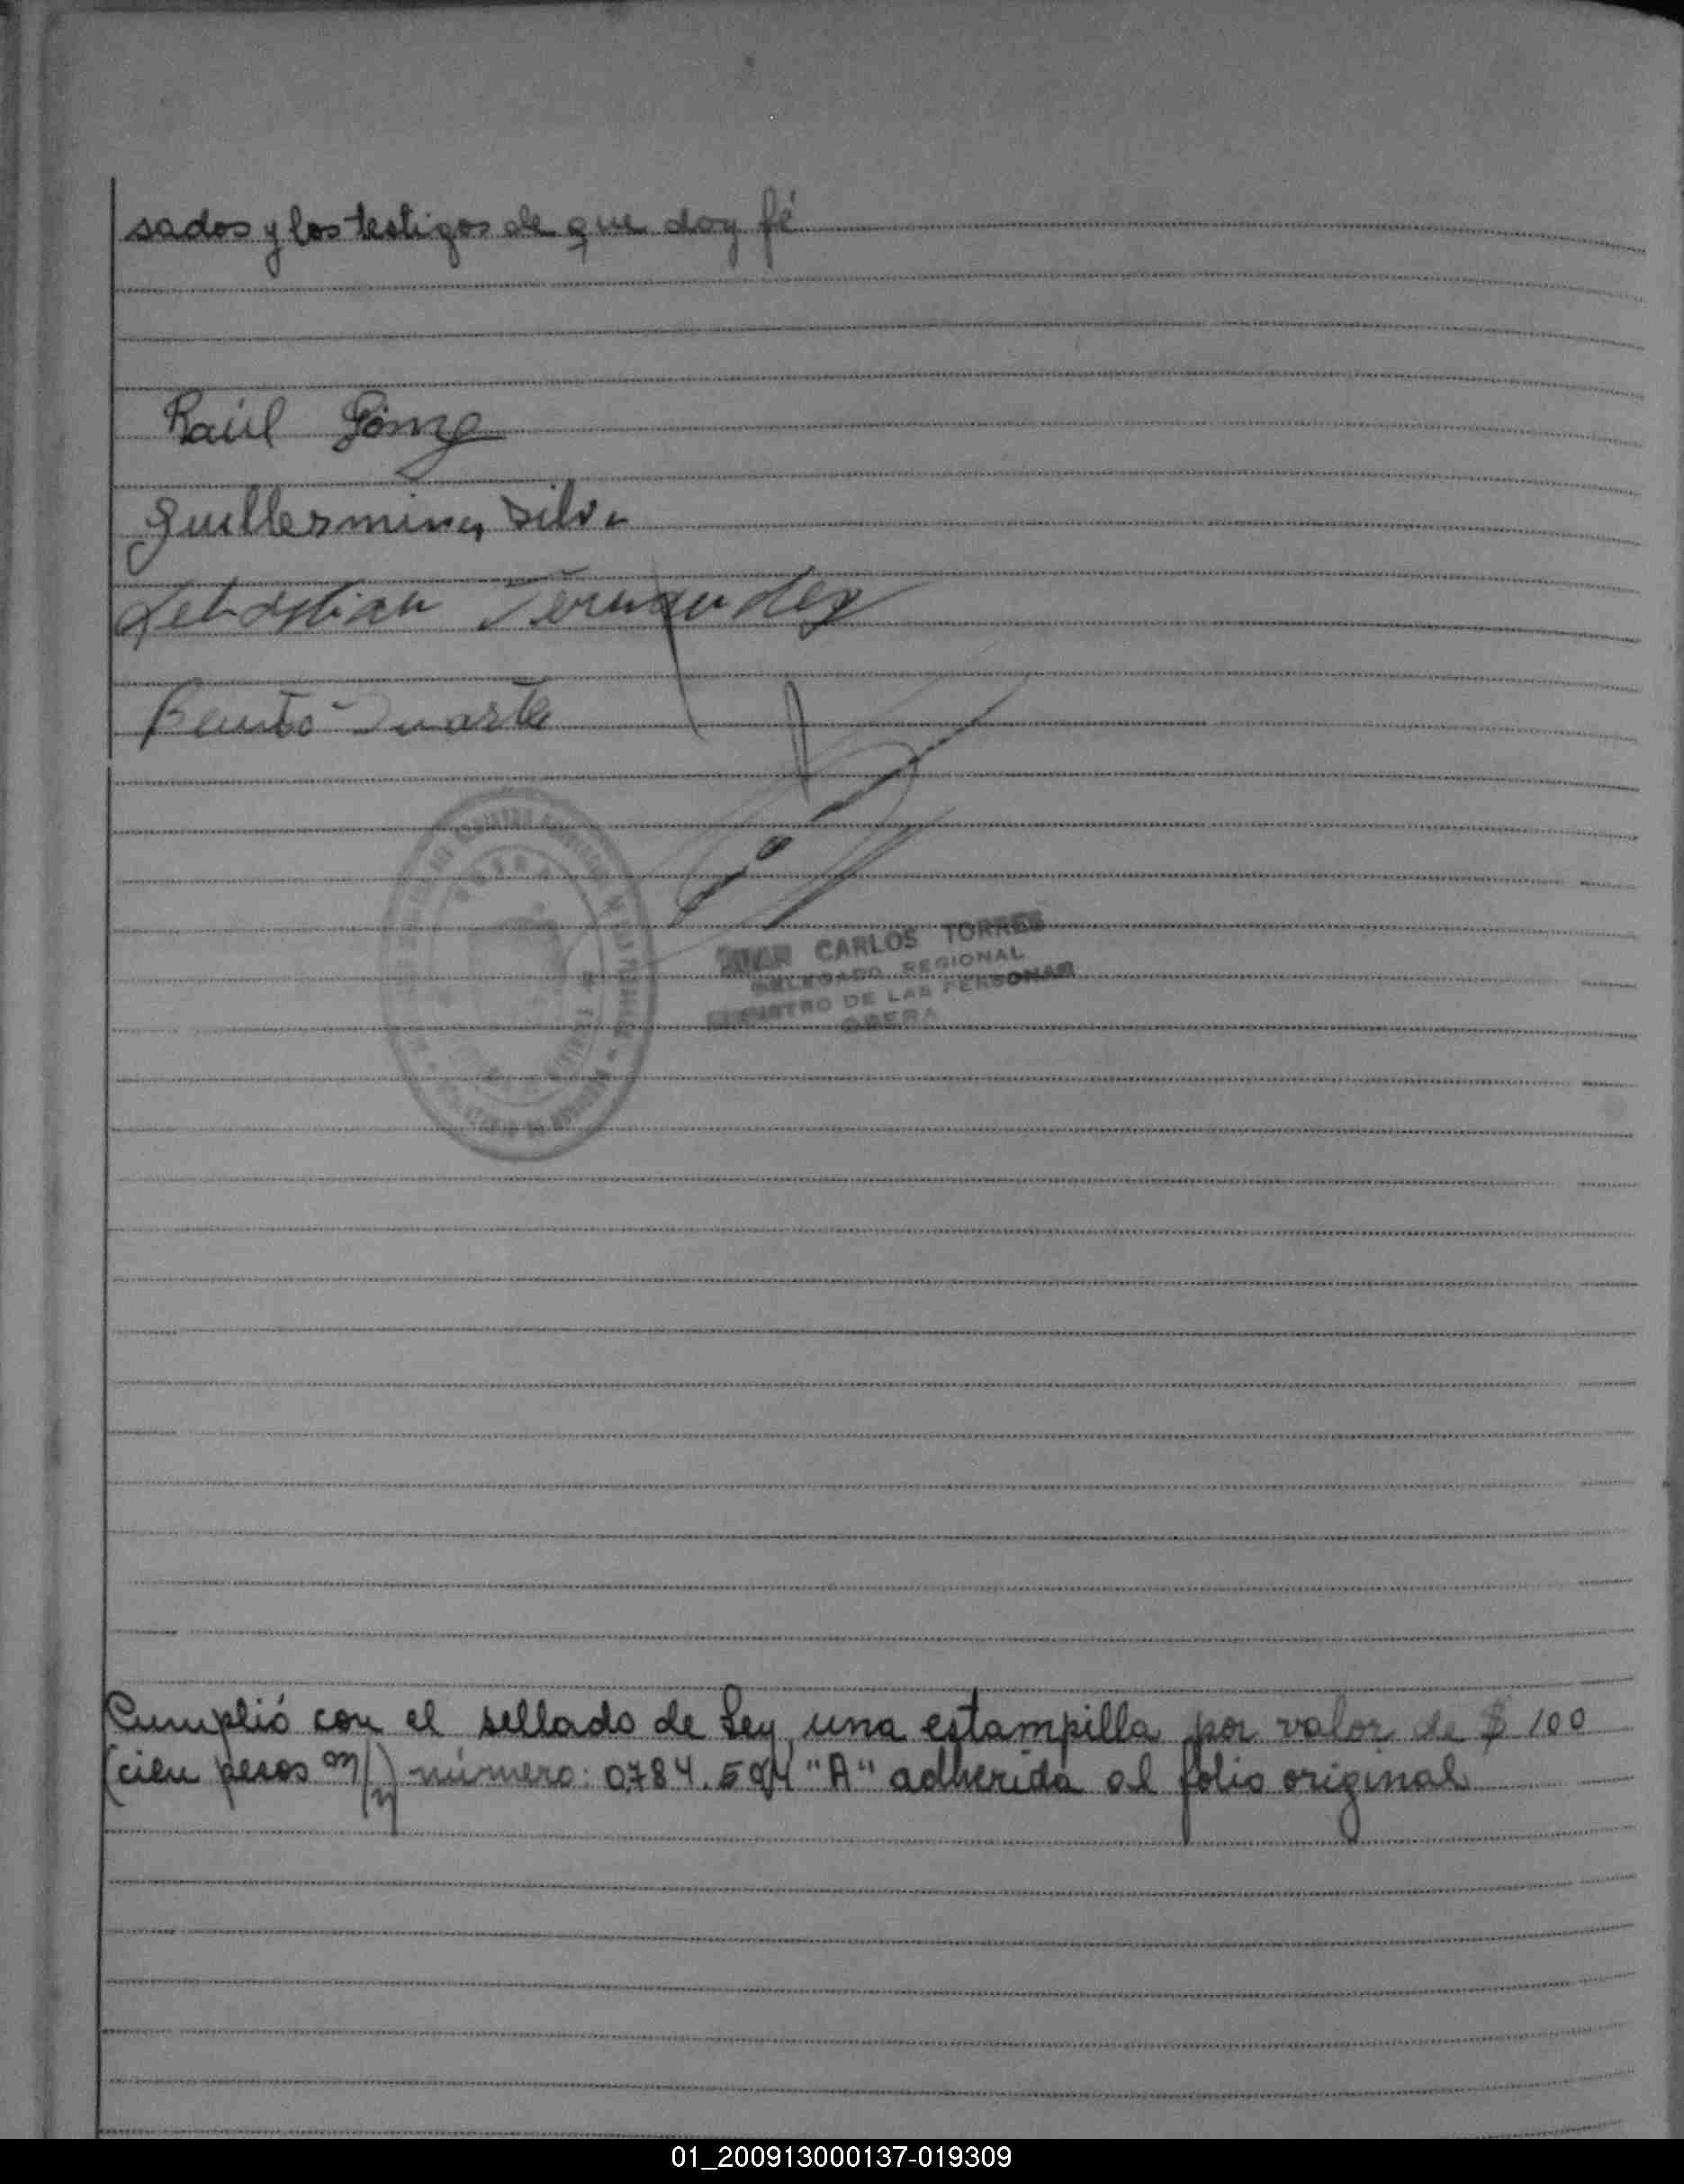 sados y los testigos de que doy fé
Raúl Gómez
Guillermina Silva
Sebastian Fernandez
Benito Duarte
JUAN CARLOS TORRES
DELEGADO REGIONAL
REGISTRO DE LAS PERSONAS
OBERA
Cumplió con el sellado de Ley, una estampilla por valor de $ 100
(cien pesos m/n) número: 0784.594 "A" adherida al folio original
01_200913000137-019309